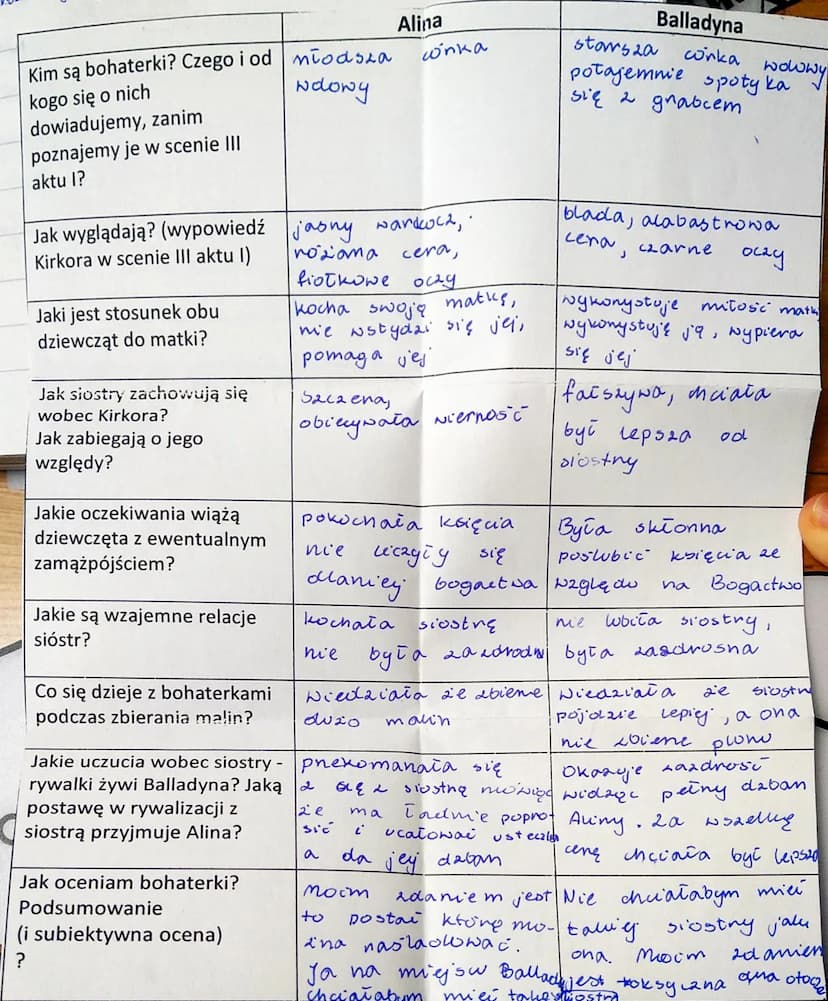 Alina
Balladyna
Kim są bohaterki? Czego i od
kogo się o nich
dowiadujemy, zanim
poznajemy je w scenie III
aktu I?
młodsza córka
wdowy
starsza córka wdowy
potajemnie spotyka
się z grabcem
Jak wyglądają? (wypowiedź
Kirkora w scenie III aktu I)
jasny warkocz,
różana cera,
fiołkowe oczy
blada, alabastrowa
cera, czarne oczy
Jaki jest stosunek obu
dziewcząt do matki?
kocha swoją matkę,
nie wstydzi się jej,
pomaga jej
wykorzystuje miłość matki
wykorzystują ją, wypiera
się jej
Jak siostry zachowują się
wobec Kirkora?
Jak zabiegają o jego
względy?
szczera,
obiecywała wierność
fałszywa, chciała
być lepsza od
siostry
Jakie oczekiwania wiążą
dziewczęta z ewentualnym
zamążpójściem?
pokochała księcia
nie liczyły się
dla niej bogactwa
Była skłonna
poślubić księcia ze
względu na Bogactwo
Jakie są wzajemne relacje
sióstr?
kochała siostrę
nie była zazdrosn
nie lubiła siostry,
była zazdrosna
Co się dzieje z bohaterkami
podczas zbierania malin?
wiedziała że zbierze
dużo malin
wiedziała że siostrze
pójdzie lepiej, a ona
nie zbierze plonu
Jakie uczucia wobec siostry -
rywalki żywi Balladyna? Jaką
postawę w rywalizacji z
siostrą przyjmuje Alina?
przekomarzała się
z siostrą mówiąc
że ma ładnie popro-
sić i ucałować usteczka
a da jej dzban
Okazuje zazdrość
widząc pełny dzban
Aliny. Za wszelką
cenę chciała być lepsza
Jak oceniam bohaterki?
Podsumowanie
(i subiektywna ocena)
?
Moim zdaniem jest
to postać którą mo-
żna naśladować.
Ja na miejscu Ballady
chciałabym mieć taką siostrę
Nie chciałabym mieć
takiej siostry jak
ona. Moim zdaniem
jest toksyczna dla otocze